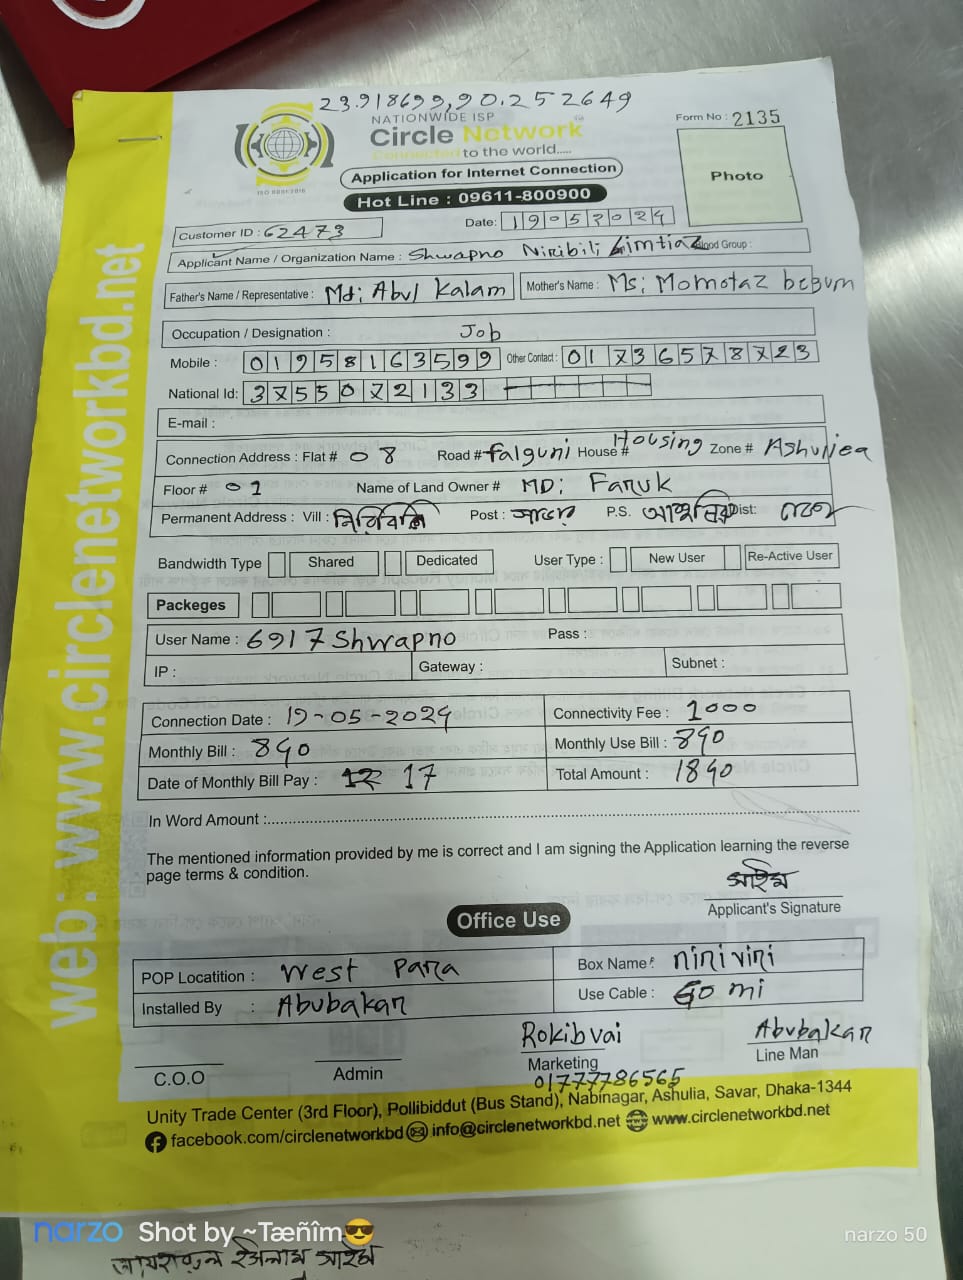 23.918699,90.252649
NATIONWIDE ISP
Circle Network
Connected to the world.....
Form No : 2135
Application for Internet Connection
Photo
Hot Line : 09611-800900
ISO 9001:2015
Customer ID : 62473
Date: 19052024
Applicant Name / Organization Name : Shwapno Niribili Limtiaz Blood Group :
Father's Name / Representative : Md: Abul Kalam Mother's Name : Ms: Momotaz begum
Occupation / Designation : Job
Mobile : 01958163599 Other Contact : 01736578723
National Id: 3755072133
E-mail :
Connection Address : Flat # 08 Road # falguni House # Housing Zone # Ashuliea
Floor # 01 Name of Land Owner # MD: Faruk
Permanent Address : Vill : নিরিবিলি Post : সাভার P.S. আশুলিয়া Dist: ঢাকা
Bandwidth Type Shared Dedicated User Type : New User Re-Active User
Packeges
User Name : 6917Shwapno Pass :
IP : Gateway : Subnet :
Connection Date : 19-05-2024 Connectivity Fee : 1000
Monthly Bill : 840 Monthly Use Bill : 840
Date of Monthly Bill Pay : 17 Total Amount : 1840
In Word Amount :
The mentioned information provided by me is correct and I am signing the Application learning the reverse
page terms & condition.
সাইম
Applicant's Signature
Office Use
POP Locatition : West Para Box Name : niriviri
Installed By : Abubakar Use Cable : 60 mi
Rokibvai Abubakar
C.O.O Admin Marketing Line Man
01777786565
Unity Trade Center (3rd Floor), Pollibiddut (Bus Stand), Nabinagar, Ashulia, Savar, Dhaka-1344
facebook.com/circlenetworkbd info@circlenetworkbd.net www.circlenetworkbd.net
web: www.circlenetworkbd.net
narzo Shot by ~Tæñîm😎 narzo 50
ইসলাম সাইম